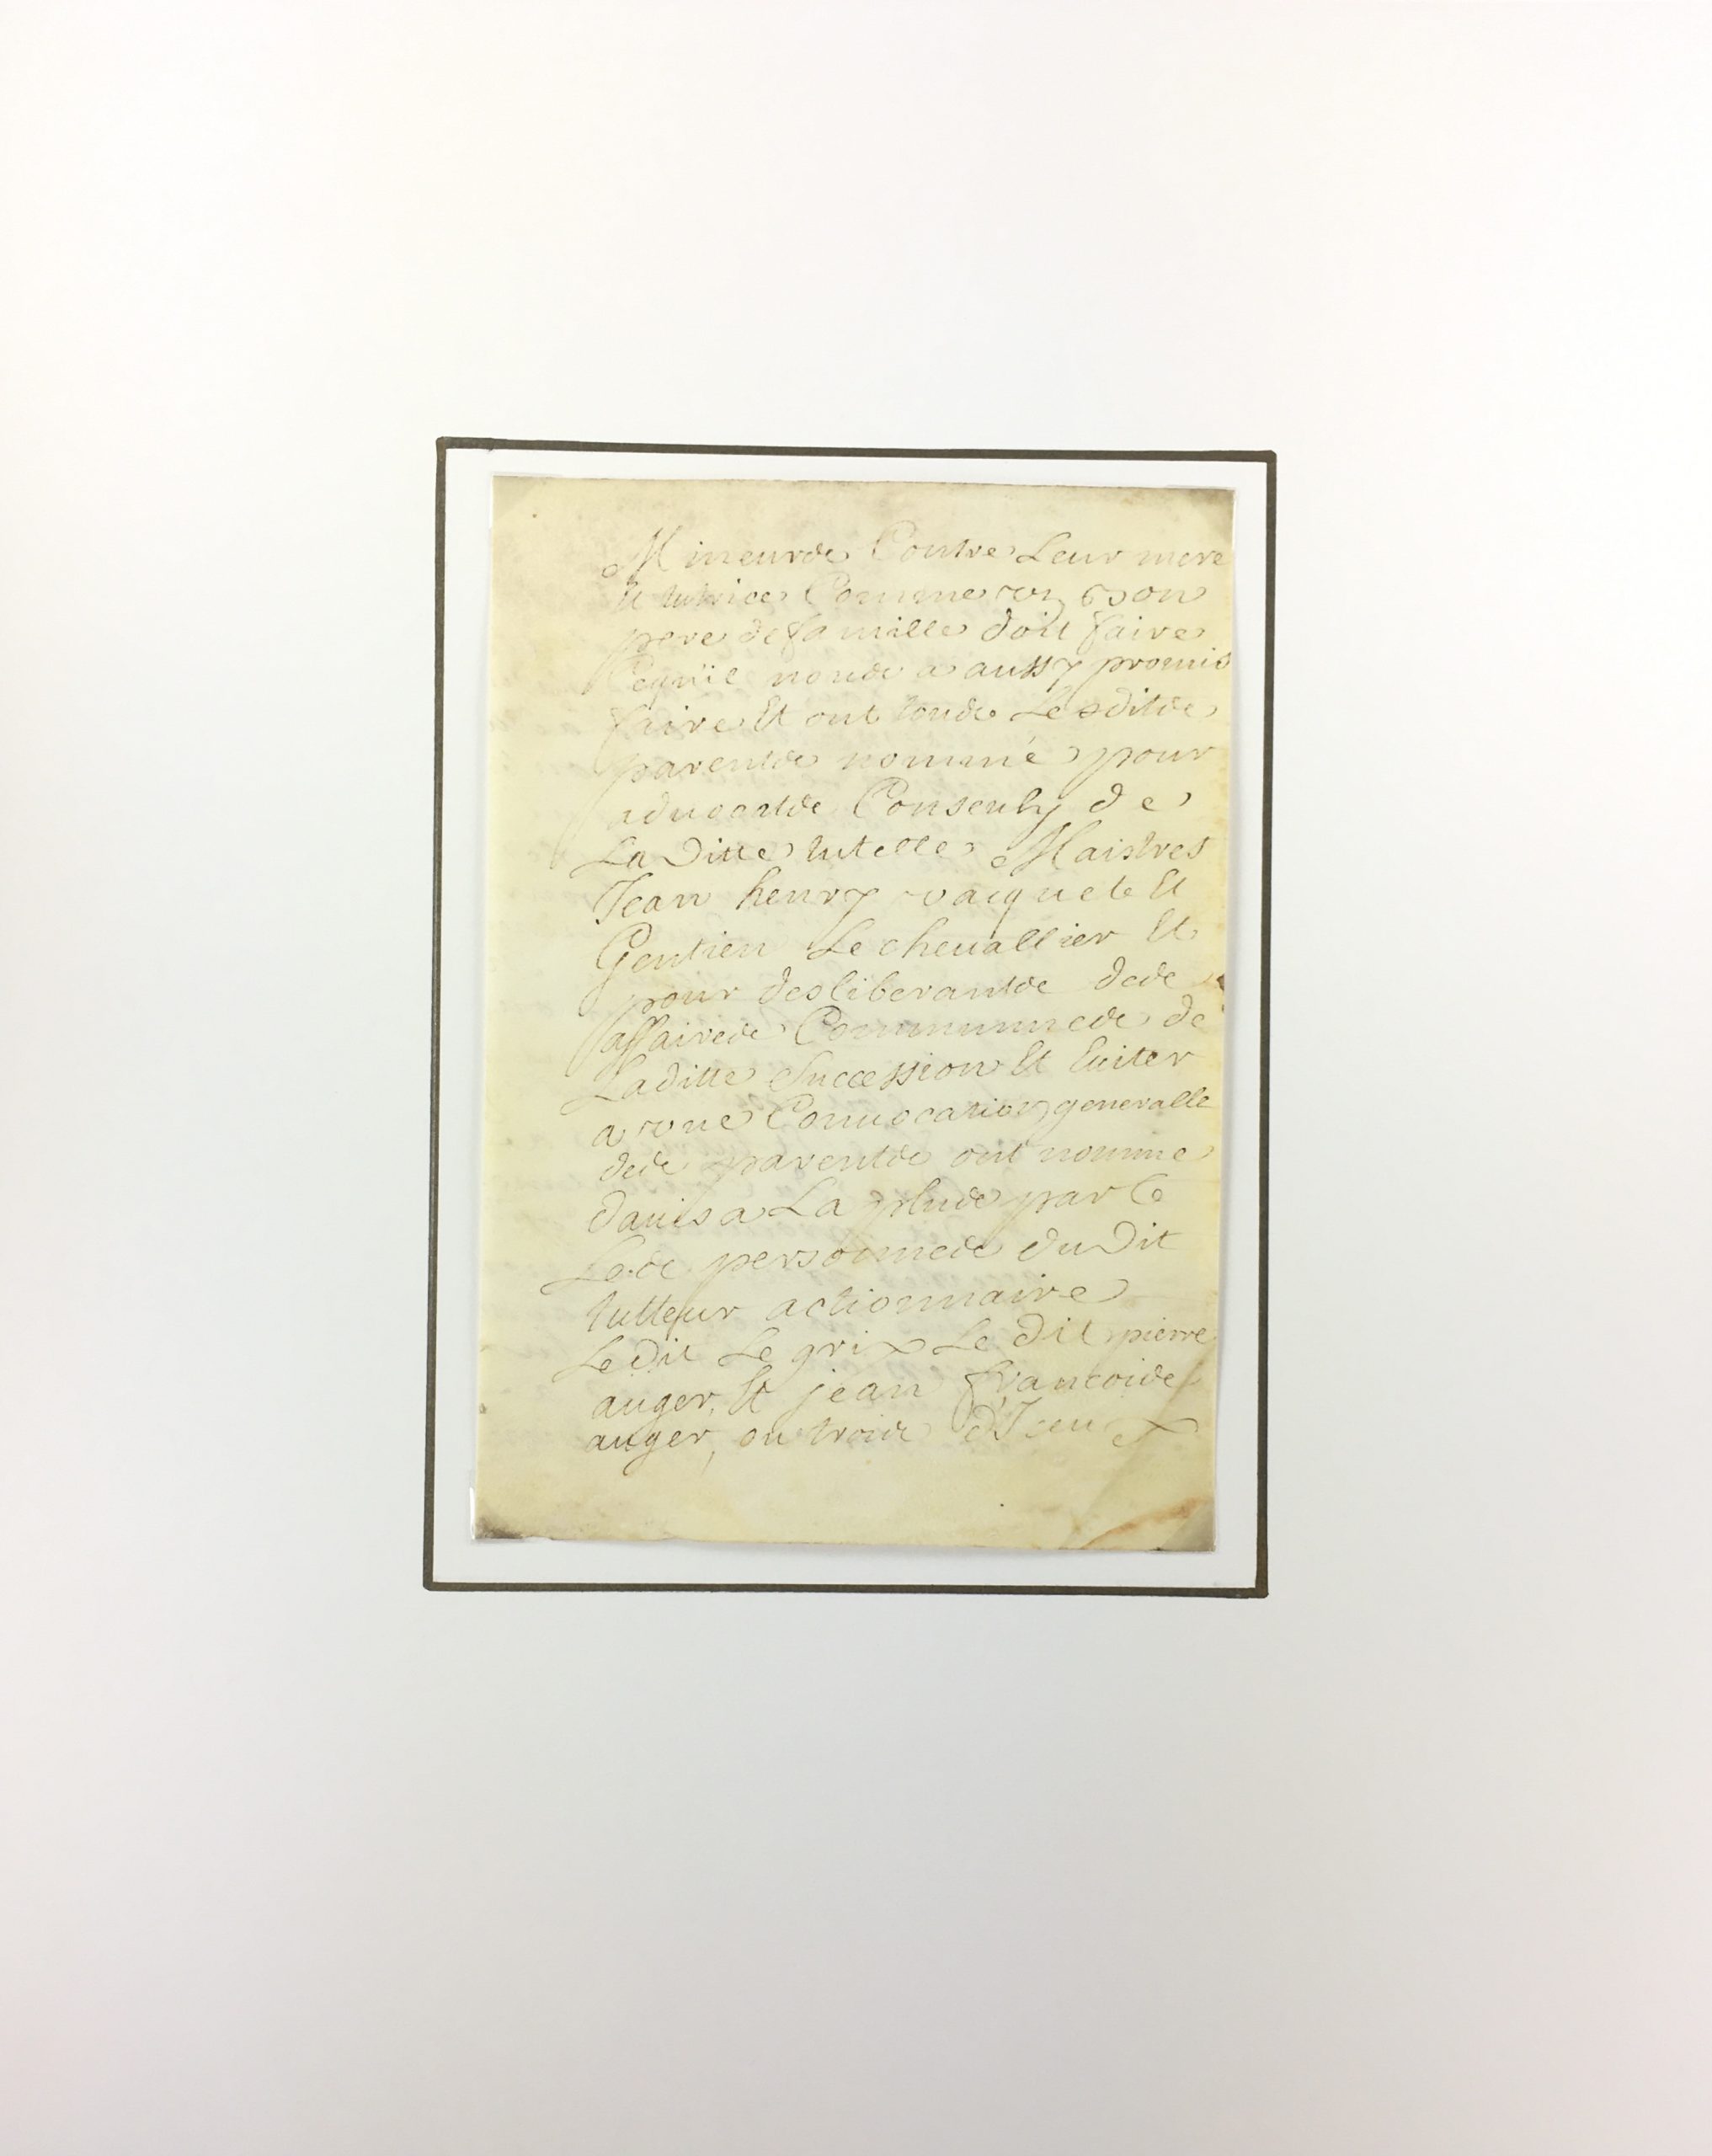 Mineurs Contre Leur mere
et tutrice Comme un bon
pere de famille doit faire
Cequil nous a aussy promis
faire Et ont tous Lesdits
parents nommé pour
aduocats Conseuls de
La Ditte tutelle Maistres
Jean henry vacquet Et
Gentien Le cheuallier Et
pour desliberants des
affaires Communnes de
Laditte Succession Et Euiter
a vne Conuocation generalle
des parents ont nomme
dauis a La plus part
Les personnes du Dit
tutteur actionnaire
Ledit Le grix Le Dit pierre
auger, Et jean francois
auger, ou trois d'Iceux